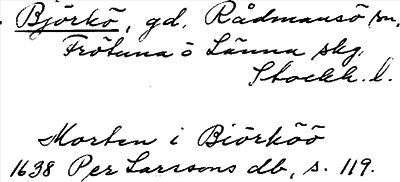 Björkö, gd. Rådmansö sn,
Frötuna o Länna skg.
Stockh. l.
Morten i Biörköö
1638 Per Larssons db, s. 119.